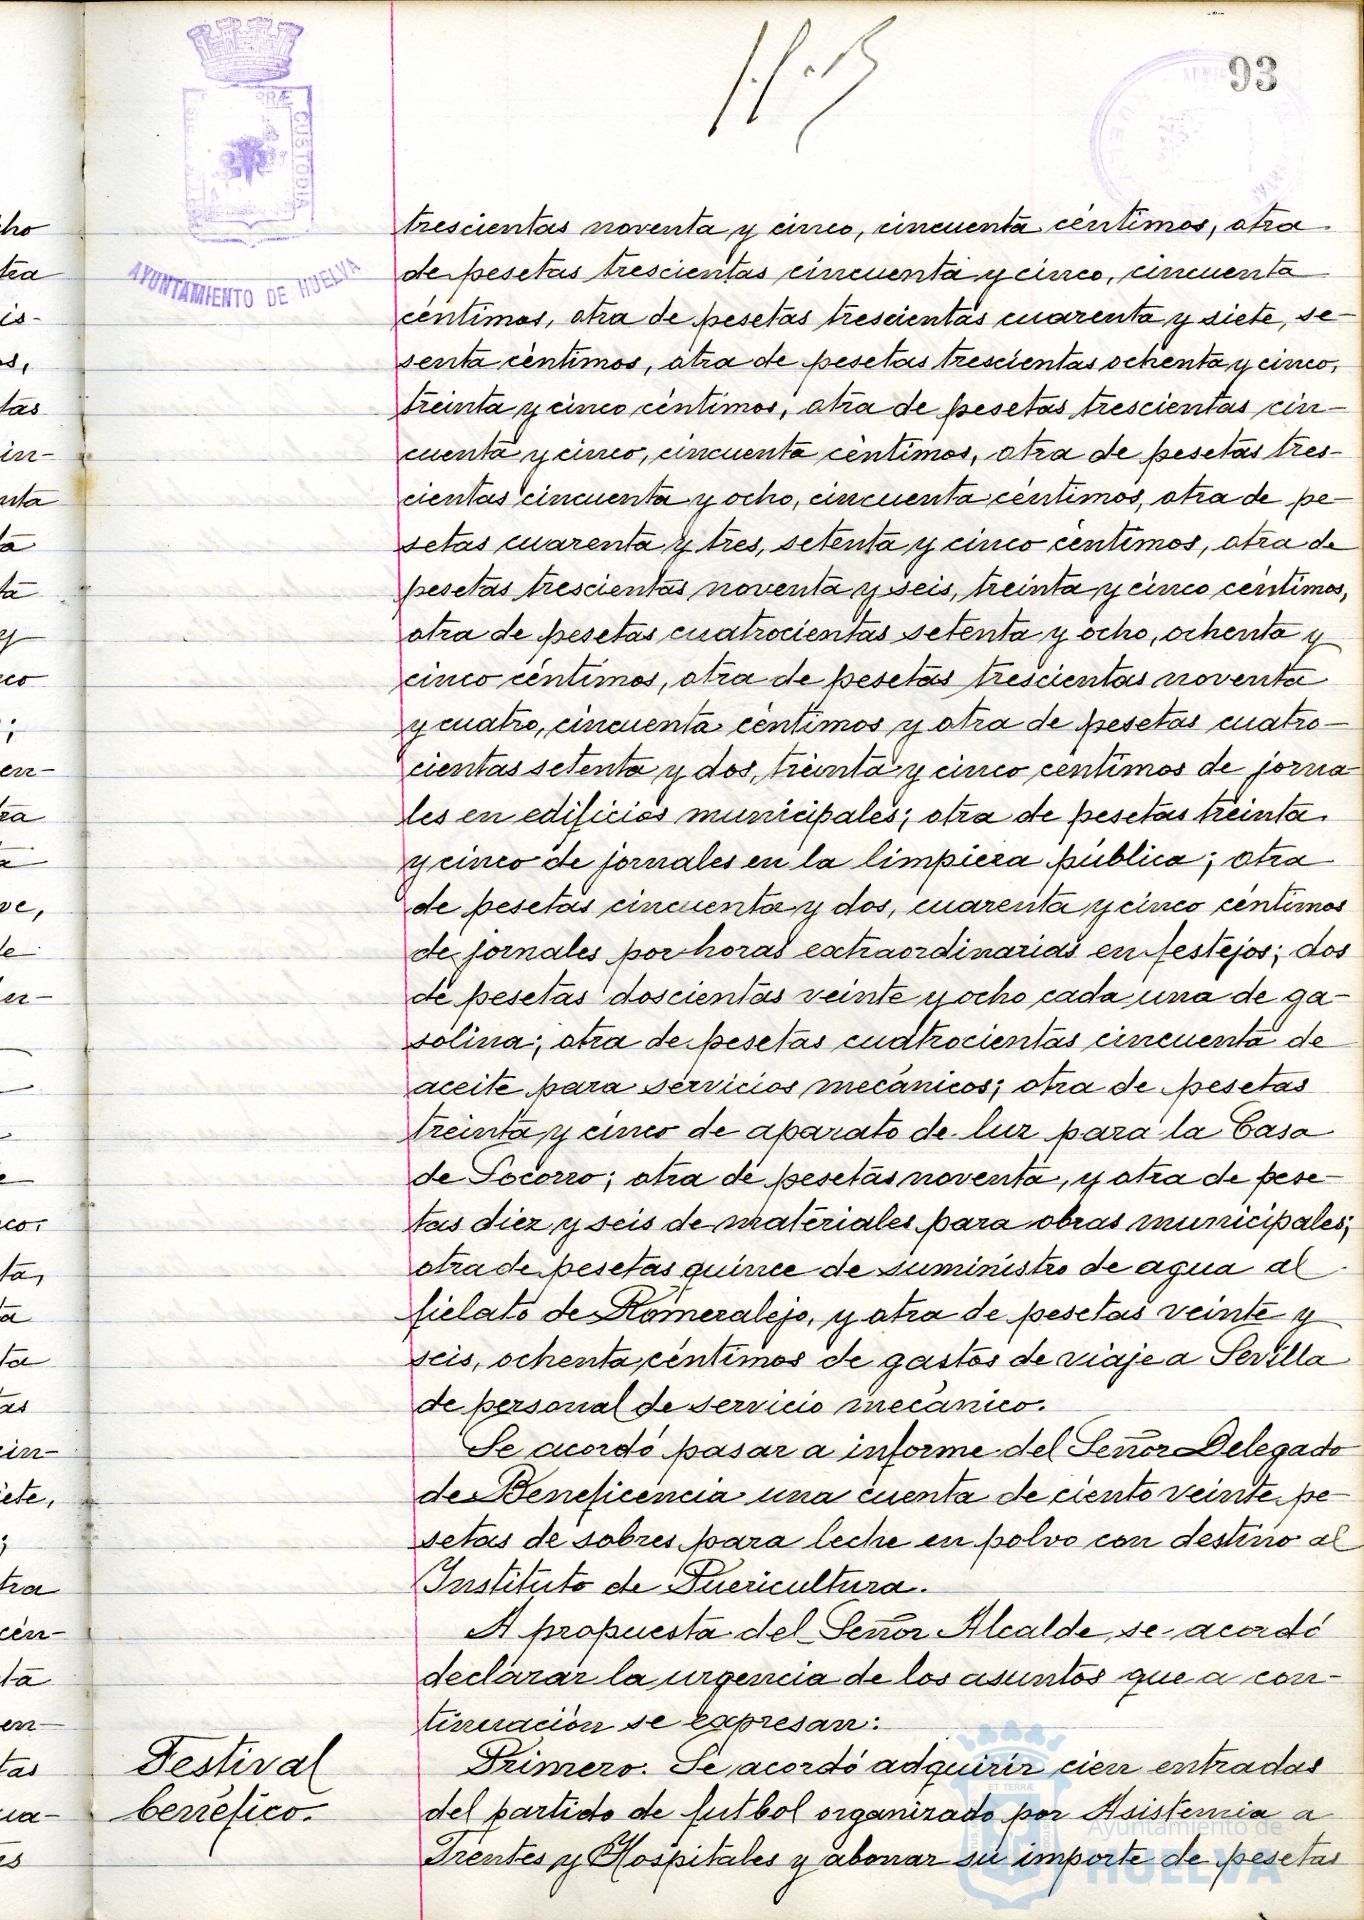 93
CUSTODIA
AYUNTAMIENTO DE HUELVA
trescientas noventa y cinco, cincuenta céntimos, otra
de pesetas trescientas cincuenta y cinco, cincuenta
céntimos, otra de pesetas trescientas cuarenta y siete, se-
senta céntimos, otra de pesetas trescientas ochenta y cinco,
treinta y cinco céntimos, otra de pesetas trescientas cin-
cuenta y cinco, cincuenta céntimos, otra de pesetas tres-
cientas cincuenta y ocho, cincuenta céntimos, otra de pe-
setas cuarenta y tres, setenta y cinco céntimos, otra de
pesetas trescientas noventa y seis, treinta y cinco céntimos,
otra de pesetas cuatrocientas setenta y ocho, ochenta y
cinco céntimos, otra de pesetas trescientas noventa
y cuatro, cincuenta céntimos y otra de pesetas cuatro-
cientas setenta y dos, treinta y cinco céntimos de jorna-
les en edificios municipales; otra de pesetas treinta
y cinco de jornales en la limpieza pública; otra
de pesetas cincuenta y dos, cuarenta y cinco céntimos
de jornales por horas extraordinarias en festejos; dos
de pesetas doscientas veinte y ocho cada una de ga-
solina; otra de pesetas cuatrocientas cincuenta de
aceite para servicios mecánicos; otra de pesetas
treinta y cinco de aparato de luz para la Casa
de Socorro; otra de pesetas noventa, y otra de pese-
tas diez y seis de materiales para obras municipales;
otra de pesetas quince de suministro de agua al
fielato de Romeralejo, y otra de pesetas veinte y
seis, ochenta céntimos de gastos de viaje a Sevilla
de personal de servicio mecánico.
Se acordó pasar a informe del Señor Delegado
de Beneficencia una cuenta de ciento veinte pe-
setas de sobres para leche en polvo con destino al
Instituto de Puericultura.
A propuesta del Señor Alcalde, se acordó
declarar la urgencia de los asuntos que a con-
tinuación se expresan:
Festival
benéfico.
Primero. Se acordó adquirir cien entradas
del partido de futbol organizado por Asistencia a
Frentes y Hospitales y abonar su importe de pesetas
Ayuntamiento de
HUELVA